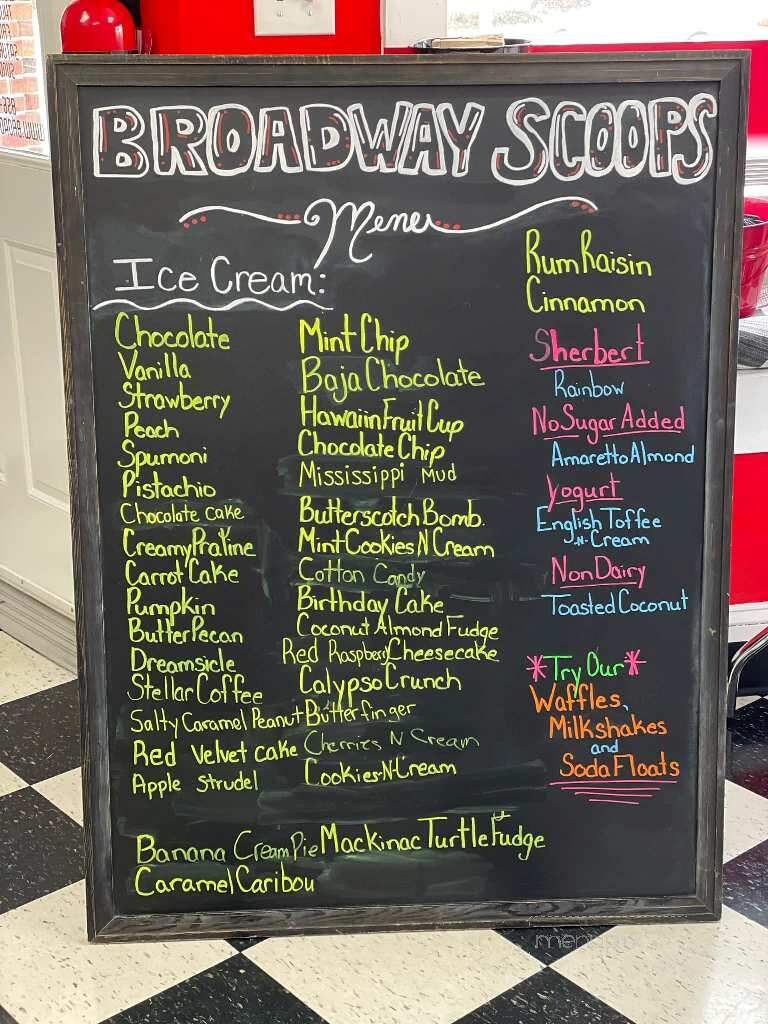 BROADWAY SCOOPS
Menu
Ice Cream:
Chocolate
Vanilla
Strawberry
Peach
Spumoni
Pistachio
Chocolate cake
Creamy Praline
Carrot Cake
Pumpkin
Butter Pecan
Dreamsicle
Stellar Coffee
Salty Caramel Peanut
Red Velvet cake
Apple Strudel
Mint Chip
Baja Chocolate
Hawaiin Fruit Cup
Chocolate Chip
Mississippi Mud
Butterscotch Bomb.
Mint Cookies N Cream
Cotton Candy
Birthday Cake
Coconut Almond Fudge
Red Raspberry Cheesecake
Calypso Crunch
Butterfinger
Cherries N Cream
Cookies-N-Cream
Banana Cream Pie
Mackinac Turtle Fudge
Caramel Caribou
Rum Raisin
Cinnamon
Sherbert
Rainbow
No Sugar Added
Amaretto Almond
Yogurt
English Toffee
-N- Cream
Non Dairy
Toasted Coconut
*Try Our*
Waffles,
Milkshakes
and
Soda Floats